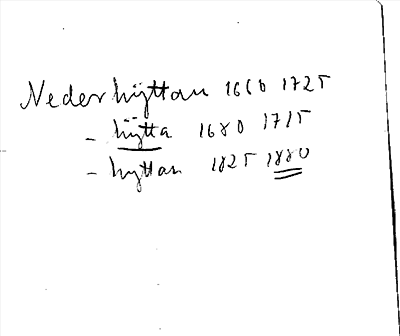 Nederhyttan 1660 1725
- hytta 1680 1715
- hyttan 1825 1880